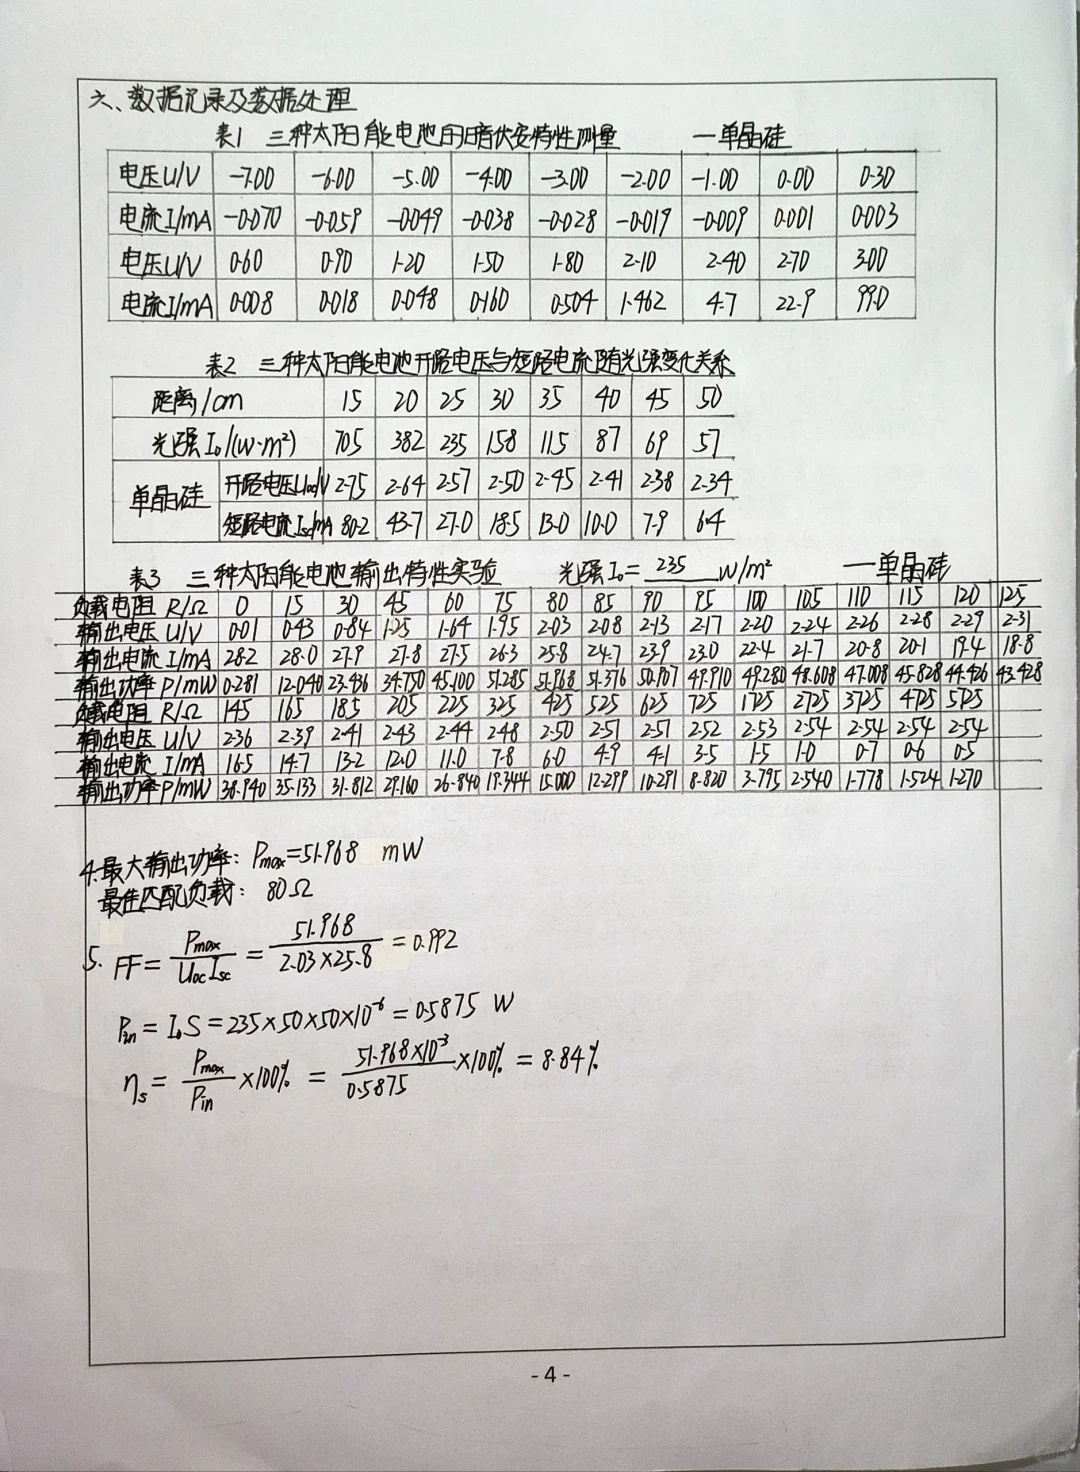 六、数据记录及数据处理
表1 三种太阳能电池的暗伏安特性测量 —单晶硅
电压U/V -7.00 -6.00 -5.00 -4.00 -3.00 -2.00 -1.00 0.00 0.30
电流I/mA -0.070 -0.059 -0.049 -0.038 -0.028 -0.019 -0.009 0.001 0.003
电压U/V 0.60 0.90 1.20 1.50 1.80 2.10 2.40 2.70 3.00
电流I/mA 0.008 0.018 0.048 0.160 0.504 1.462 4.7 22.9 99.0
表2 三种太阳能电池开路电压与短路电流随光强变化关系
距离/cm 15 20 25 30 35 40 45 50
光强I₀/(w·m²) 705 382 235 158 115 87 69 57
单晶硅 开路电压Uoc/V 2.75 2.64 2.57 2.50 2.45 2.41 2.38 2.34
短路电流Isc/mA 80.2 43.7 27.0 18.5 13.0 10.0 7.9 6.4
表3 三种太阳能电池输出特性实验 光强I₀= 235 W/m² —单晶硅
负载电阻 R/Ω 0 15 30 45 60 75 80 85 90 95 100 105 110 115 120 125
输出电压 U/V 0.01 0.43 0.84 1.25 1.64 1.95 2.03 2.08 2.13 2.17 2.20 2.24 2.26 2.28 2.29 2.31
输出电流 I/mA 28.2 28.0 27.9 27.8 27.5 26.3 25.8 24.7 23.9 23.0 22.4 21.7 20.8 20.1 19.4 18.8
输出功率 P/mW 0.281 12.040 23.436 34.750 45.100 51.285 51.968 51.376 50.907 49.910 49.280 48.608 47.008 45.828 44.426 43.428
负载电阻 R/Ω 145 165 185 205 225 325 425 525 625 725 1725 2725 3725 4725 5725
输出电压 U/V 2.36 2.39 2.41 2.43 2.44 2.48 2.50 2.51 2.51 2.52 2.53 2.54 2.54 2.54 2.54
输出电流 I/mA 16.5 14.7 13.2 12.0 11.0 7.8 6.0 4.9 4.1 3.5 1.5 1.0 0.7 0.6 0.5
输出功率P/mW 38.940 35.133 31.812 29.160 26.840 19.344 15.000 12.299 10.291 8.820 3.795 2.540 1.778 1.524 1.270
4.最大输出功率: Pmax=51.968 mW
最佳匹配负载: 80Ω
5. FF= Pmax/UocIsc = 51.968/2.03×25.8 = 0.992
Pin = I₀S = 235×50×50×10⁻⁶ = 0.5875 W
ηs = Pmax/Pin ×100% = 51.968×10⁻³/0.5875 ×100% = 8.84%
- 4 -